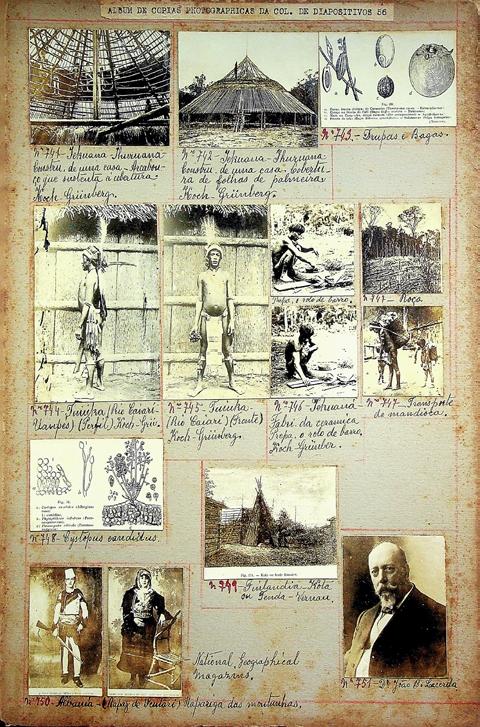 ALBUM DE COPIAS PHOTOGRAPHICAS DA COL. DE DIAPOSITIVOS 56
Nº 741 - Tehuana Ihuruana
Constru. de uma casa - Arcabou-
ço que sustenta a cubatura.
Koch Grünberg.
Nº 742 - Tehuana Ihuruana
Constru. de uma casa - Cobertu-
ra de folhas de palmeira
Koch - Grünberg.
Nº 743 - Drupas e Bagas.
Nº 744 - Tuiuka (Rio Caiari-
Uaupés) (Perfil) Koch-Grün.
Nº 745 - Tuiuka
(Rio Caiari) (Frente)
Koch - Grünberg.
Prepa. o rolo de barro.
Nº 746 - Tehuaná
Fabri. da ceramica
Prepa. o rolo de barro.
Koch-Grünber.
747 - Roça
Nº 747 - Transporte
de mandioca.
Nº 748 - Cystopus candidus.
Nº 749 - Finlandia - Kota
ou Tenda - Vernau.
Nº 750 - Albania - (Rapaz de Scutari) Rapariga das montanhas.
National Geographical
Magazins.
Nº 751 - Dr João B. Lacerda